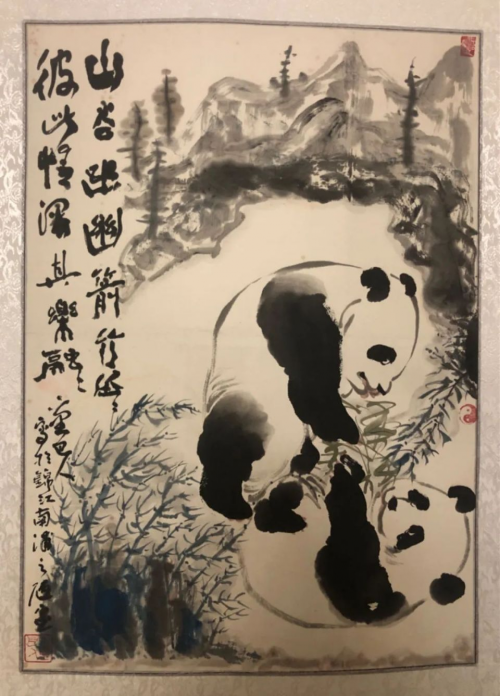 山谷幽幽箭竹
彼此情深其樂融々
巴人
寫於錦江南浦之